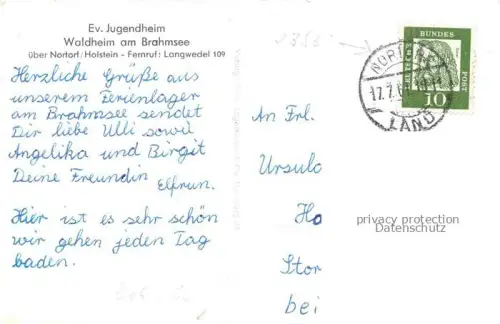 Ev. Jugendheim
Waldheim am Brahmsee
über Nortorf/Holstein - Fernruf: Langwedel 109
Herzliche Grüße aus
unserem Ferienlager
am Brahmsee sendet
Dir liebe Ulli sowie
Angelika und Birgit
Deine Freundin
Elfrun.
Hier ist es sehr schön
wir gehen jeden Tag
baden.
DEUTSCHE
BUNDES
POST
10
LAND
An Frl.
Ursula
Ho
Stor
bei
privacy protection
Datenschutz